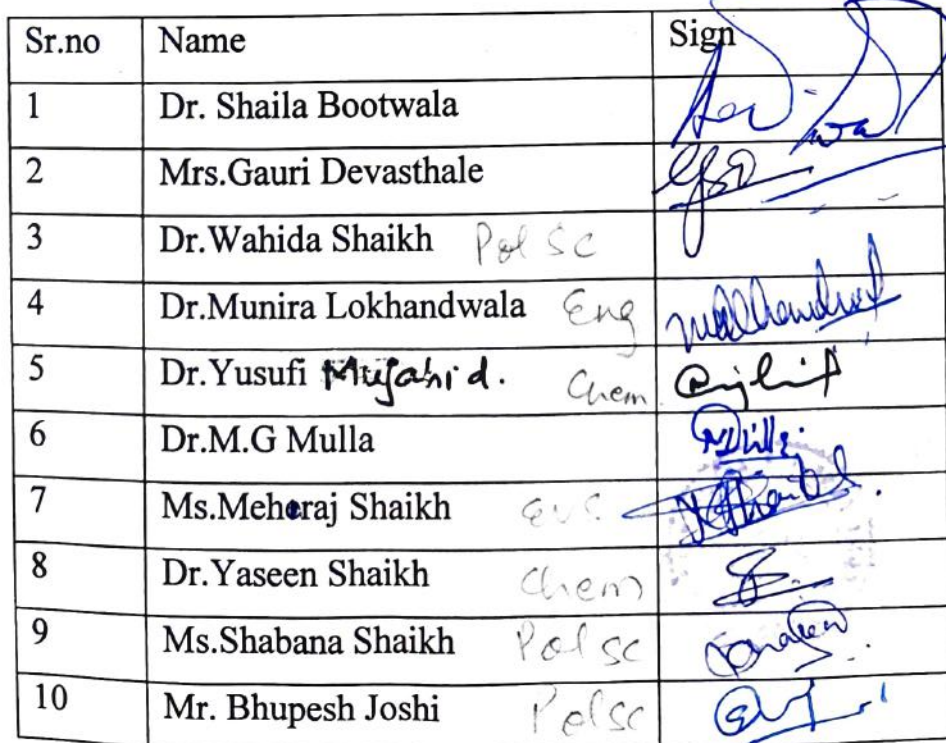 Sr.no Name Sign
1 Dr. Shaila Bootwala
2 Mrs.Gauri Devasthale
3 Dr.Wahida Shaikh Pol Sc
4 Dr.Munira Lokhandwala Eng
5 Dr.Yusufi Mujahid. Chem
6 Dr.M.G Mulla
7 Ms.Meheraj Shaikh EVS.
8 Dr.Yaseen Shaikh Chem
9 Ms.Shabana Shaikh Pol sc
10 Mr. Bhupesh Joshi Pol sc